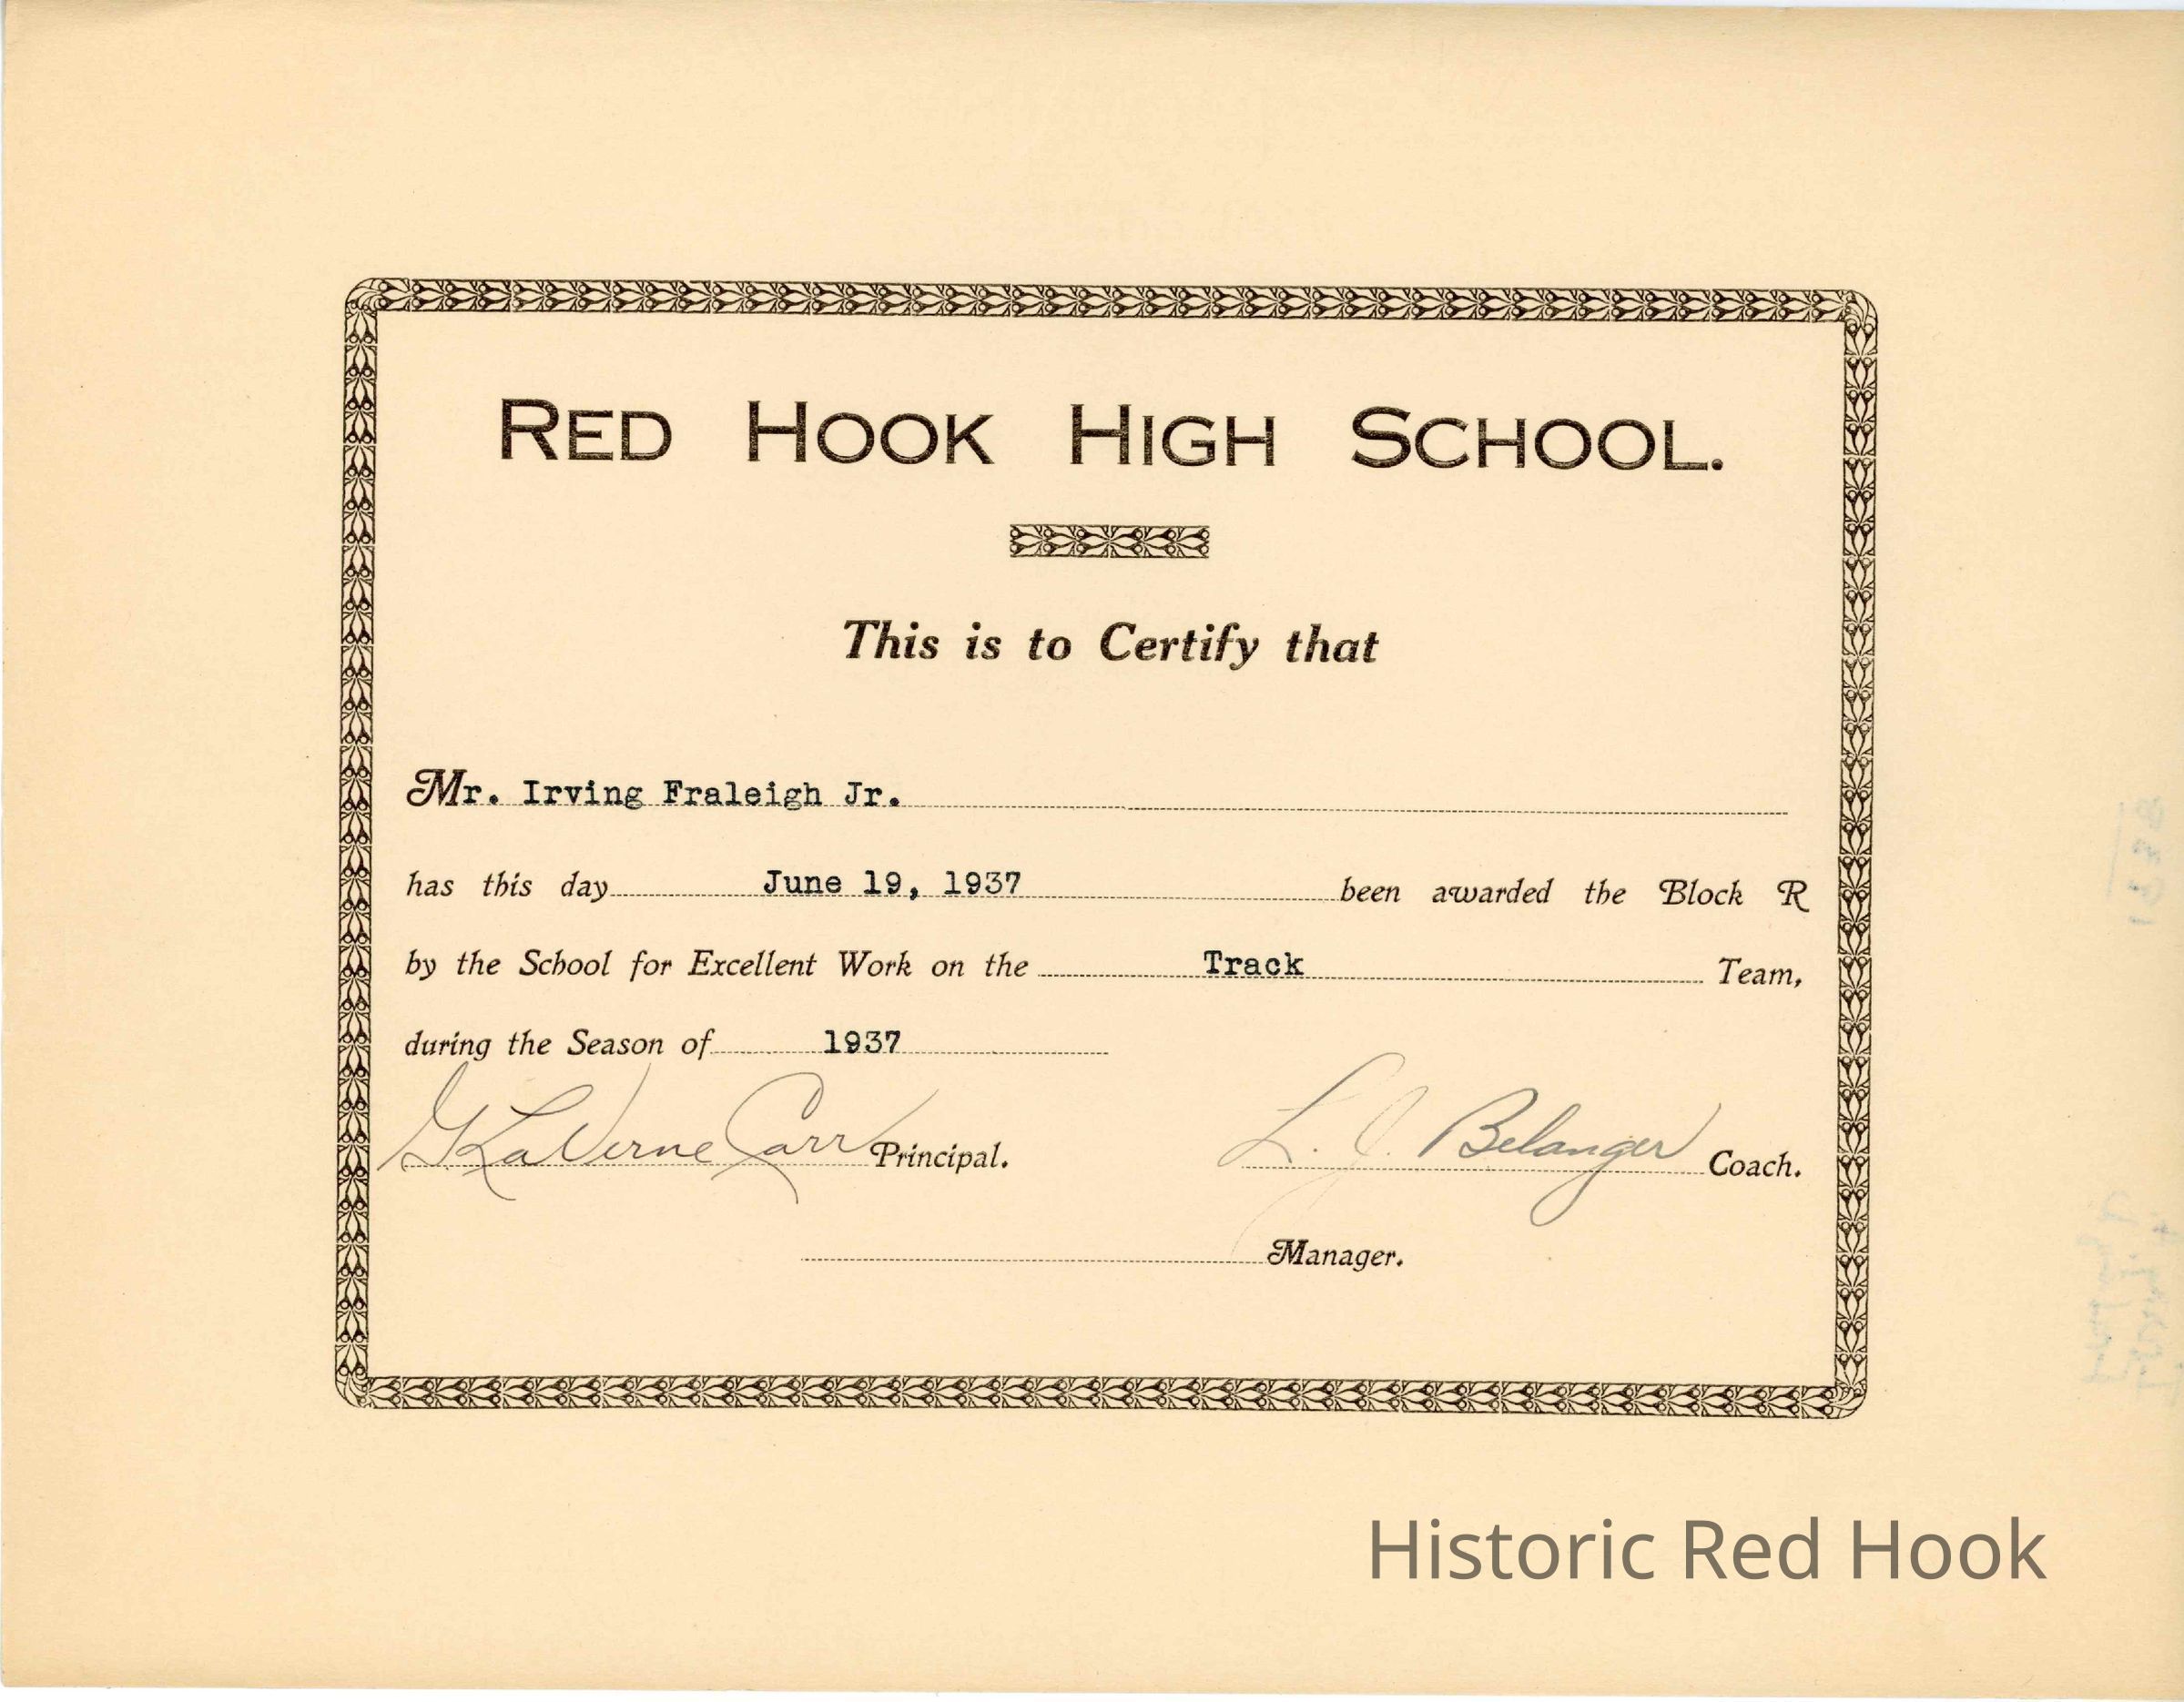 RED HOOK HIGH SCHOOL.
This is to Certify that
Mr. Irving Fraleigh Jr.
has this day June 19, 1937 been awarded the Block R
by the School for Excellent Work on the Track Team,
during the Season of 1937
G LaVerne Carr Principal. L. J. Belanger Coach.
Manager.
Historic Red Hook